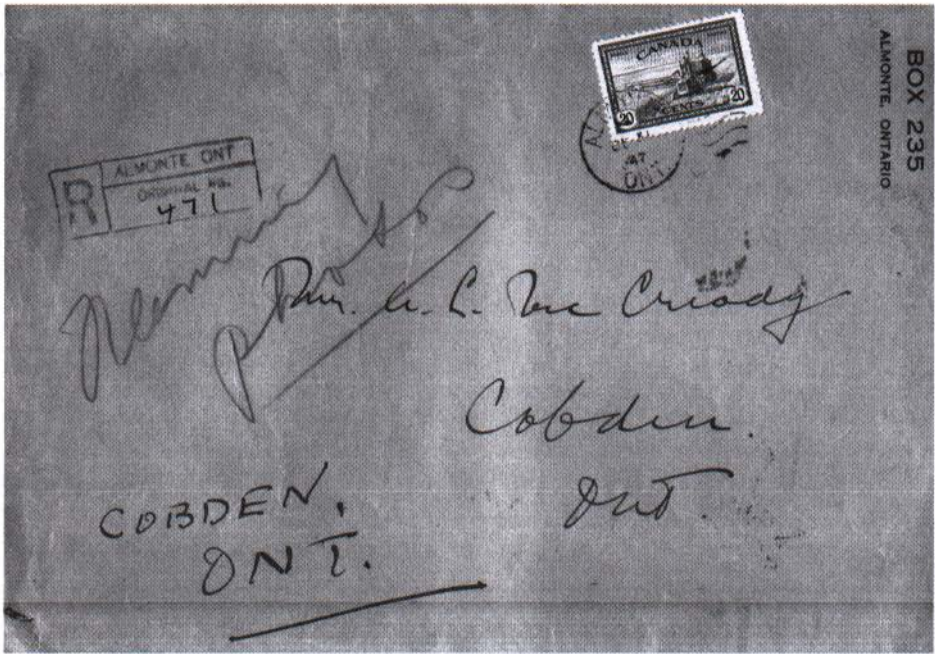 BOX 235
ALMONTE, ONTARIO
CANADA
20 CENTS 20
47
ONT
R
ALMONTE ONT
ORIGINAL No.
471
Photo
A. C. Mc Cready
Cobden.
Ont.
COBDEN,
ONT.